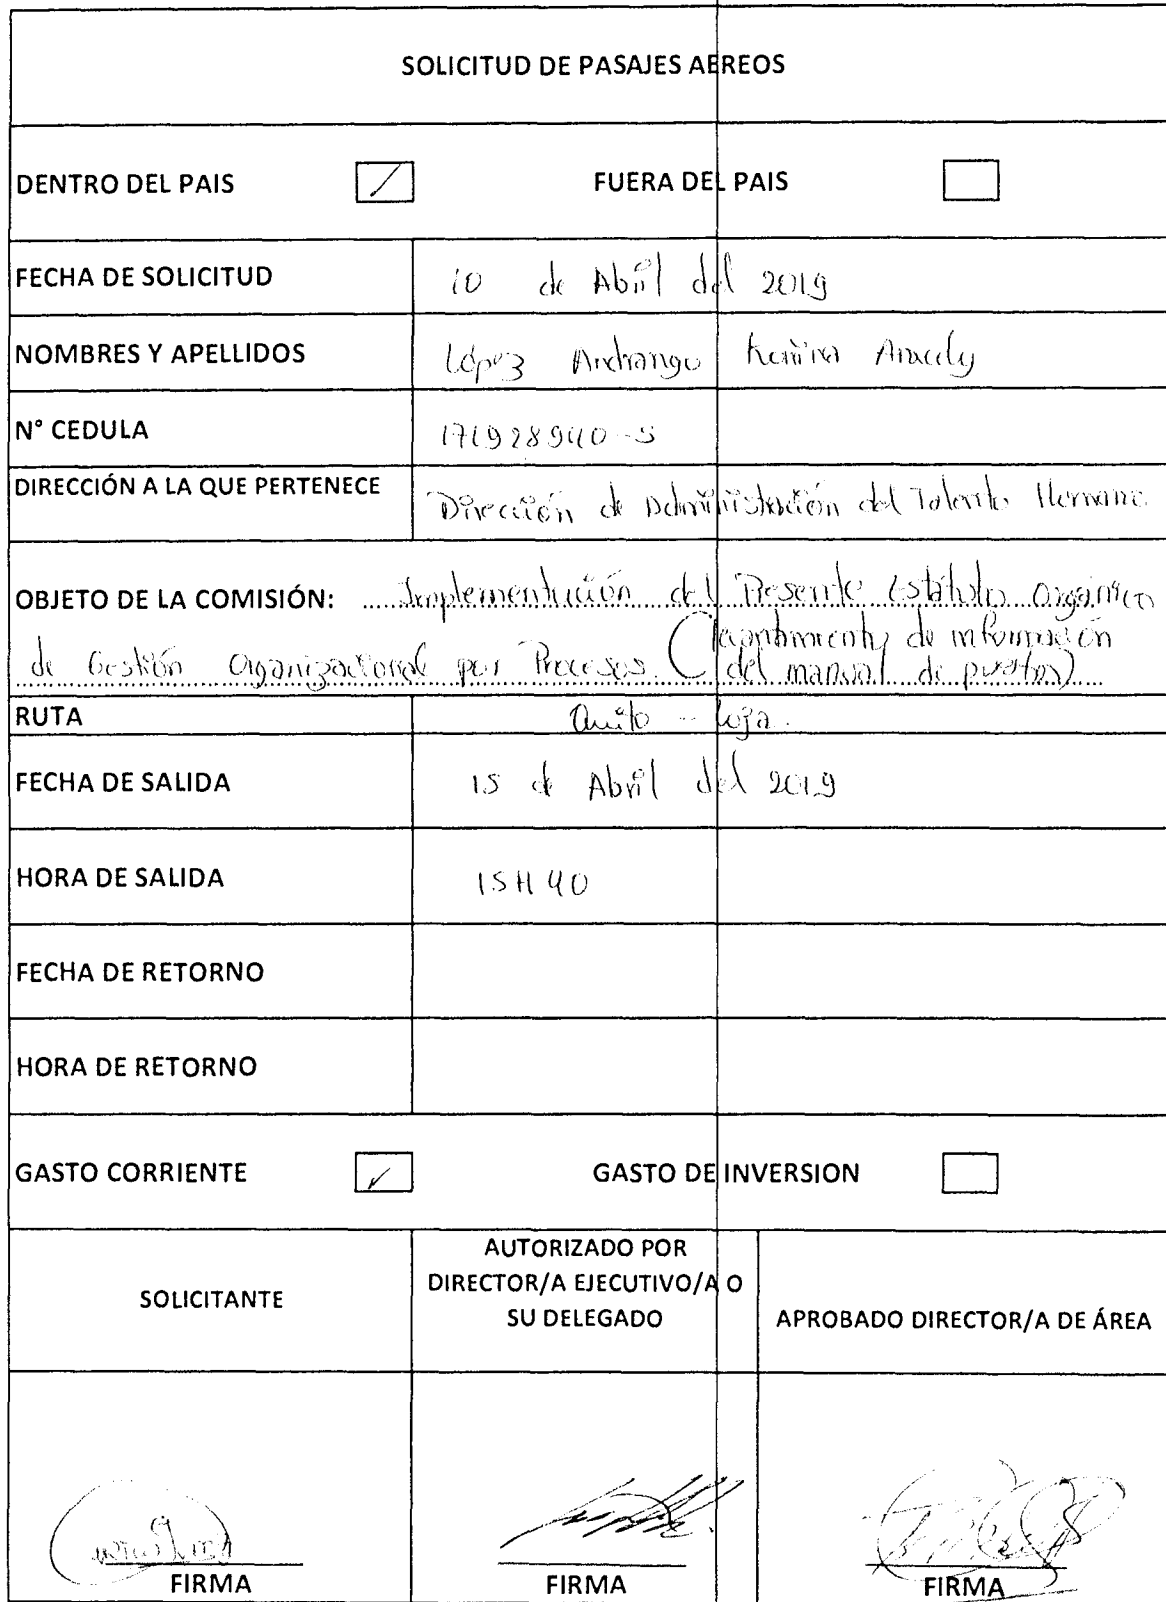 SOLICITUD DE PASAJES AEREOS
DENTRO DEL PAIS FUERA DEL PAIS
FECHA DE SOLICITUD 10 de Abril del 2019
NOMBRES Y APELLIDOS López Andrango Aracely
N° CEDULA
DIRECCIÓN A LA QUE PERTENECE Dirección de Administración del Talento Humano
OBJETO DE LA COMISIÓN: Implementación del Presente Estatuto Orgánico
de Gestión Organizacional por Procesos (levantamiento de información
del manual de puestos)
RUTA Quito - Loja.
FECHA DE SALIDA 15 de Abril del 2019
HORA DE SALIDA 15H40
FECHA DE RETORNO
HORA DE RETORNO
GASTO CORRIENTE GASTO DE INVERSION
SOLICITANTE
AUTORIZADO POR
DIRECTOR/A EJECUTIVO/A O
SU DELEGADO
APROBADO DIRECTOR/A DE ÁREA
FIRMA FIRMA FIRMA